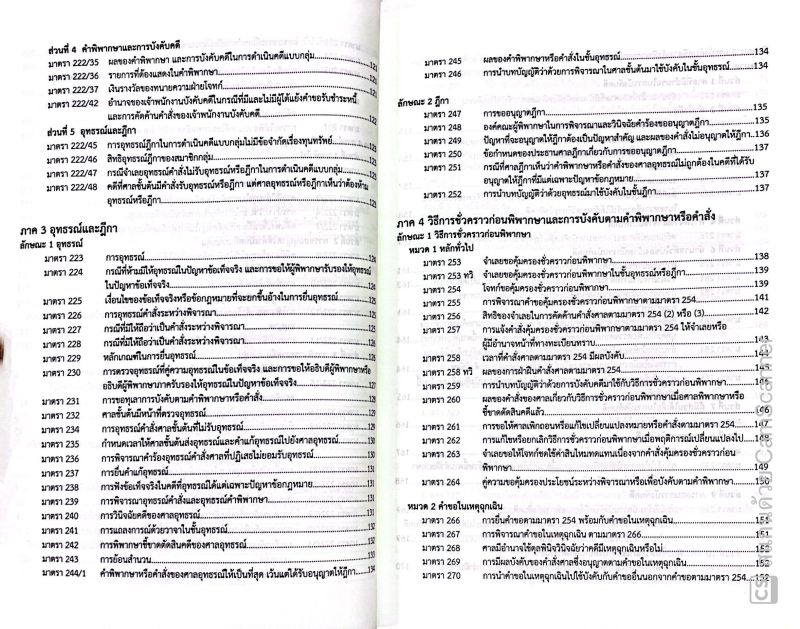 ส่วนที่ 4 คำพิพากษาและการบังคับคดี
มาตรา 222/35 ผลของคำพิพากษา และการบังคับคดีในการดำเนินคดีแบบกลุ่ม 121
มาตรา 222/36 รายการที่ต้องแสดงในคำพิพากษา 121
มาตรา 222/37 เงินรางวัลของทนายความฝ่ายโจทก์ 121
มาตรา 222/42 อำนาจของเจ้าพนักงานบังคับคดีในกรณีที่มีและไม่มีผู้ได้แย้งคำขอรับชำระหนี้
และการคัดค้านคำสั่งของเจ้าพนักงานบังคับคดี 122
ส่วนที่ 5 อุทธรณ์และฎีกา
มาตรา 222/45 การอุทธรณ์ฎีกาในการดำเนินคดีแบบกลุ่มไม่มีข้อจำกัดเรื่องทุนทรัพย์
มาตรา 222/46 สิทธิอุทธรณ์ฎีกาของสมาชิกกลุ่ม
มาตรา 222/47 กรณีจำเลยอุทธรณ์คำสั่งไม่รับอุทธรณ์หรือฎีกาในการดำเนินคดีแบบกลุ่ม
มาตรา 222/48 คดีที่ศาลชั้นต้นมีคำสั่งรับอุทธรณ์หรือฎีกา แต่ศาลอุทธรณ์หรือฎีกาเห็นว่าต้องห้าม
อุทธรณ์หรือฎีกา
ภาค 3 อุทธรณ์และฎีกา
ลักษณะ 1 อุทธรณ์
มาตรา 223 การอุทธรณ์
มาตรา 224 กรณีที่ห้ามมิให้อุทธรณ์ในปัญหาข้อเท็จจริง และการขอให้ผู้พิพากษารับรองให้อุทธรณ์
ในปัญหาข้อเท็จจริง
มาตรา 225 เงื่อนไขของข้อเท็จจริงหรือข้อกฎหมายที่จะยกขึ้นอ้างในการยื่นอุทธรณ์ 125
มาตรา 226 การอุทธรณ์คำสั่งระหว่างพิจารณา 125
มาตรา 227 กรณีที่มิให้ถือว่าเป็นคำสั่งระหว่างพิจารณา 125
มาตรา 228 กรณีที่มิให้ถือว่าเป็นคำสั่งระหว่างพิจารณา 125
มาตรา 229 หลักเกณฑ์ในการยื่นอุทธรณ์ 126
มาตรา 230 การตรวจอุทธรณ์ที่คู่ความอุทธรณ์ในข้อเท็จจริง และการขอให้อธิบดีผู้พิพากษาหรือ
อธิบดีผู้พิพากษาภาครับรองให้อุทธรณ์ในปัญหาข้อเท็จจริง 127
มาตรา 231 การขอทุเลาการบังคับตามคำพิพากษาหรือคำสั่ง 128
มาตรา 232 ศาลชั้นต้นมีหน้าที่ตรวจอุทธรณ์ 129
มาตรา 234 การอุทธรณ์คำสั่งศาลชั้นต้นที่ไม่รับอุทธรณ์ 129
มาตรา 235 กำหนดเวลาให้ศาลชั้นต้นส่งอุทธรณ์และคำแก้อุทธรณ์ไปยังศาลอุทธรณ์ 130
มาตรา 236 การพิจารณาคำร้องอุทธรณ์คำสั่งศาลที่ปฏิเสธไม่ยอมรับอุทธรณ์ 130
มาตรา 237 การยื่นคำแก้อุทธรณ์ 131
มาตรา 238 การฟังข้อเท็จจริงในคดีที่อุทธรณ์ได้แต่เฉพาะปัญหาข้อกฎหมาย 131
มาตรา 239 การพิจารณาอุทธรณ์คำสั่งและอุทธรณ์คำพิพากษา 131
มาตรา 240 การวินิจฉัยคดีของศาลอุทธรณ์ 131
มาตรา 241 การแถลงการณ์ด้วยวาจาในชั้นอุทธรณ์ 132
มาตรา 242 การพิพากษาชี้ขาดตัดสินคดีของศาลอุทธรณ์ 132
มาตรา 243 การย้อนสำนวน 133
มาตรา 244/1 คำพิพากษาหรือคำสั่งของศาลอุทธรณ์ให้เป็นที่สุด เว้นแต่ได้รับอนุญาตให้ฎีกา 134
มาตรา 245 ผลของคำพิพากษาหรือคำสั่งในชั้นอุทธรณ์ 134
มาตรา 246 การนำบทบัญญัติว่าด้วยการพิจารณาในศาลชั้นต้นมาใช้บังคับในชั้นอุทธรณ์ 134
ลักษณะ 2 ฎีกา
มาตรา 247 การขออนุญาตฎีกา 135
มาตรา 248 องค์คณะผู้พิพากษาในการพิจารณาและวินิจฉัยคำร้องขออนุญาตฎีกา 135
มาตรา 249 ปัญหาที่จะอนุญาตให้ฎีกาได้ต้องเป็นปัญหาสำคัญ และผลของคำสั่งไม่อนุญาตให้ฎีกา 136
มาตรา 250 ข้อกำหนดของประธานศาลฎีกาเกี่ยวกับการขออนุญาตฎีกา 137
มาตรา 251 กรณีที่ศาลฎีกาเห็นว่าคำพิพากษาหรือคำสั่งของศาลอุทธรณ์ไม่ถูกต้องในคดีที่ได้รับ
อนุญาตให้ฎีกาที่มีแต่เฉพาะปัญหาข้อกฎหมาย 137
มาตรา 252 การนำบทบัญญัติว่าด้วยอุทธรณ์มาใช้บังคับในชั้นฎีกา 137
ภาค 4 วิธีการชั่วคราวก่อนพิพากษาและการบังคับตามคำพิพากษาหรือคำสั่ง
ลักษณะ 1 วิธีการชั่วคราวก่อนพิพากษา
หมวด 1 หลักทั่วไป
มาตรา 253 จำเลยขอคุ้มครองชั่วคราวก่อนพิพากษา 138
มาตรา 253 ทวิ จำเลยขอคุ้มครองชั่วคราวก่อนพิพากษาในชั้นอุทธรณ์หรือฎีกา 139
มาตรา 254 โจทก์ขอคุ้มครองชั่วคราวก่อนพิพากษา 139
มาตรา 255 การพิจารณาคำขอคุ้มครองชั่วคราวก่อนพิพากษาตามมาตรา 254 141
มาตรา 256 สิทธิของจำเลยในการคัดค้านคำสั่งศาลตามมาตรา 254 (2) หรือ (3) 142
มาตรา 257 การแจ้งคำสั่งคุ้มครองชั่วคราวก่อนพิพากษาตามมาตรา 254 ให้จำเลยหรือ
ผู้มีอำนาจหน้าที่ทางทะเบียนทราบ 143
มาตรา 258 เวลาที่คำสั่งศาลตามมาตรา 254 มีผลบังคับ 144
มาตรา 258 ทวิ ผลของการฝ่าฝืนคำสั่งศาลตามมาตรา 254
มาตรา 259 การนำบทบัญญัติว่าด้วยการบังคับคดีมาใช้กับวิธีการชั่วคราวก่อนพิพากษา
มาตรา 260 ผลของคำสั่งของศาลเกี่ยวกับวิธีการชั่วคราวก่อนพิพากษาเมื่อศาลพิพากษาหรือ
ชี้ขาดตัดสินคดีแล้ว 146
มาตรา 261 การขอให้ศาลเพิกถอนหรือแก้ไขเปลี่ยนแปลงหมายหรือคำสั่งตามมาตรา 254 147
มาตรา 262 การแก้ไขหรือยกเลิกวิธีการชั่วคราวก่อนพิพากษาเมื่อพฤติการณ์เปลี่ยนแปลงไป 148
มาตรา 263 จำเลยขอให้โจทก์ชดใช้ค่าสินไหมทดแทนเนื่องจากคำสั่งคุ้มครองชั่วคราวก่อน
พิพากษา 149
มาตรา 264 คู่ความขอคุ้มครองประโยชน์ระหว่างพิจารณาหรือเพื่อบังคับตามคำพิพากษา 150
หมวด 2 คำขอในเหตุฉุกเฉิน
มาตรา 266 การยื่นคำขอตามมาตรา 254 พร้อมกับคำขอในเหตุฉุกเฉิน 151
มาตรา 267 การพิจารณาคำขอในเหตุฉุกเฉิน ตามมาตรา 266 151
มาตรา 268 ศาลมีอำนาจใช้ดุลพินิจวินิจฉัยว่าคดีมีเหตุฉุกเฉินหรือไม่ 152
มาตรา 269 การมีผลบังคับของคำสั่งศาลซึ่งอนุญาตตามคำขอในเหตุฉุกเฉิน 152
มาตรา 270 การนำคำขอในเหตุฉุกเฉินไปใช้บังคับกับคำขออื่นนอกจากคำขอตามมาตรา 254 152
CS สแกนด้วย CamScanner